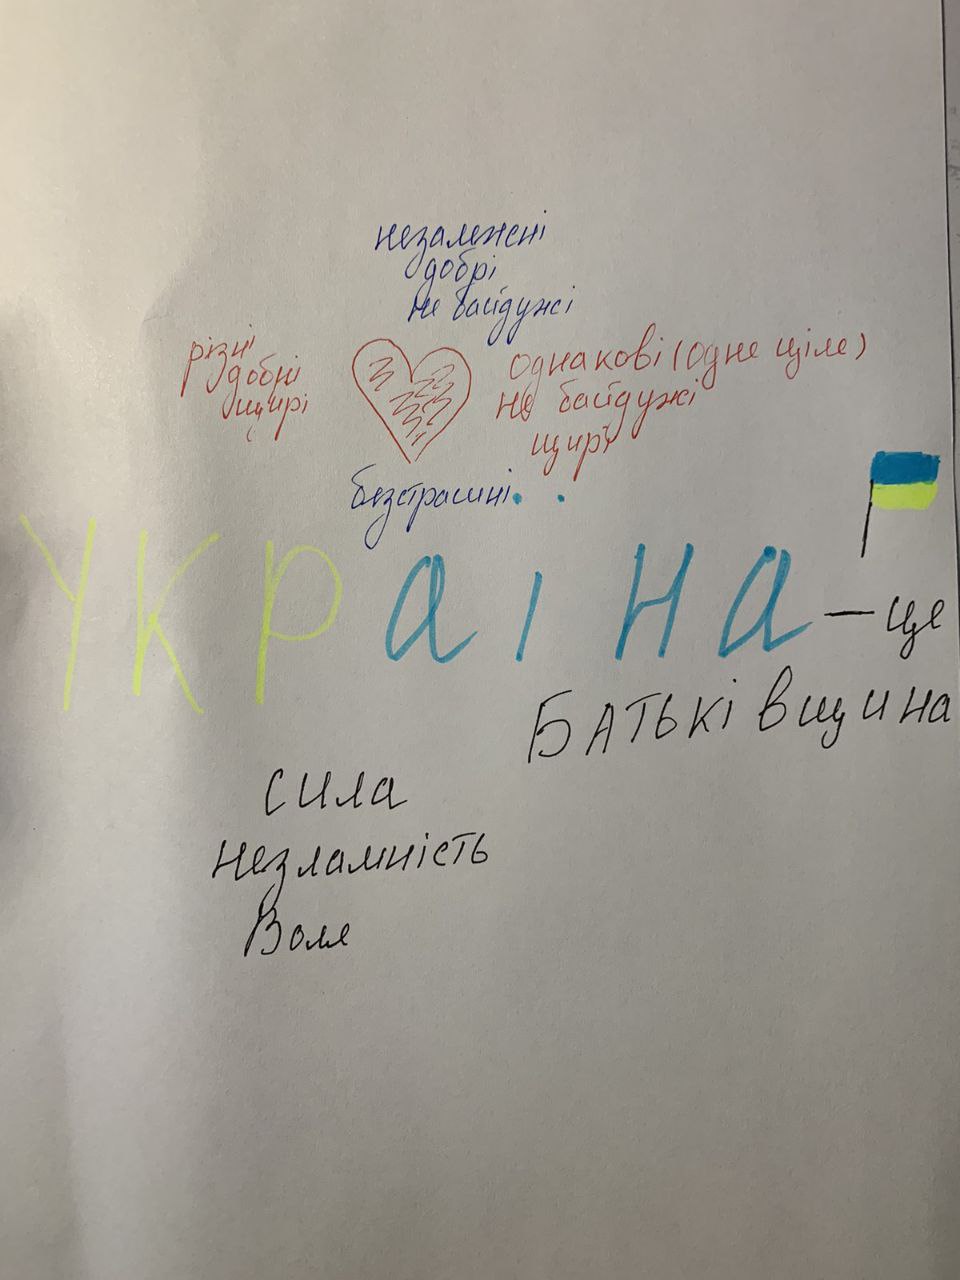 незалежні
добрі
не байдужі
різні
добрі
щирі
однакові (одне ціле)
не байдужі
щирі
безстрашні
УКРАЇНА – це
БАТЬКІВЩИНА
Сила
Незламність
Воля